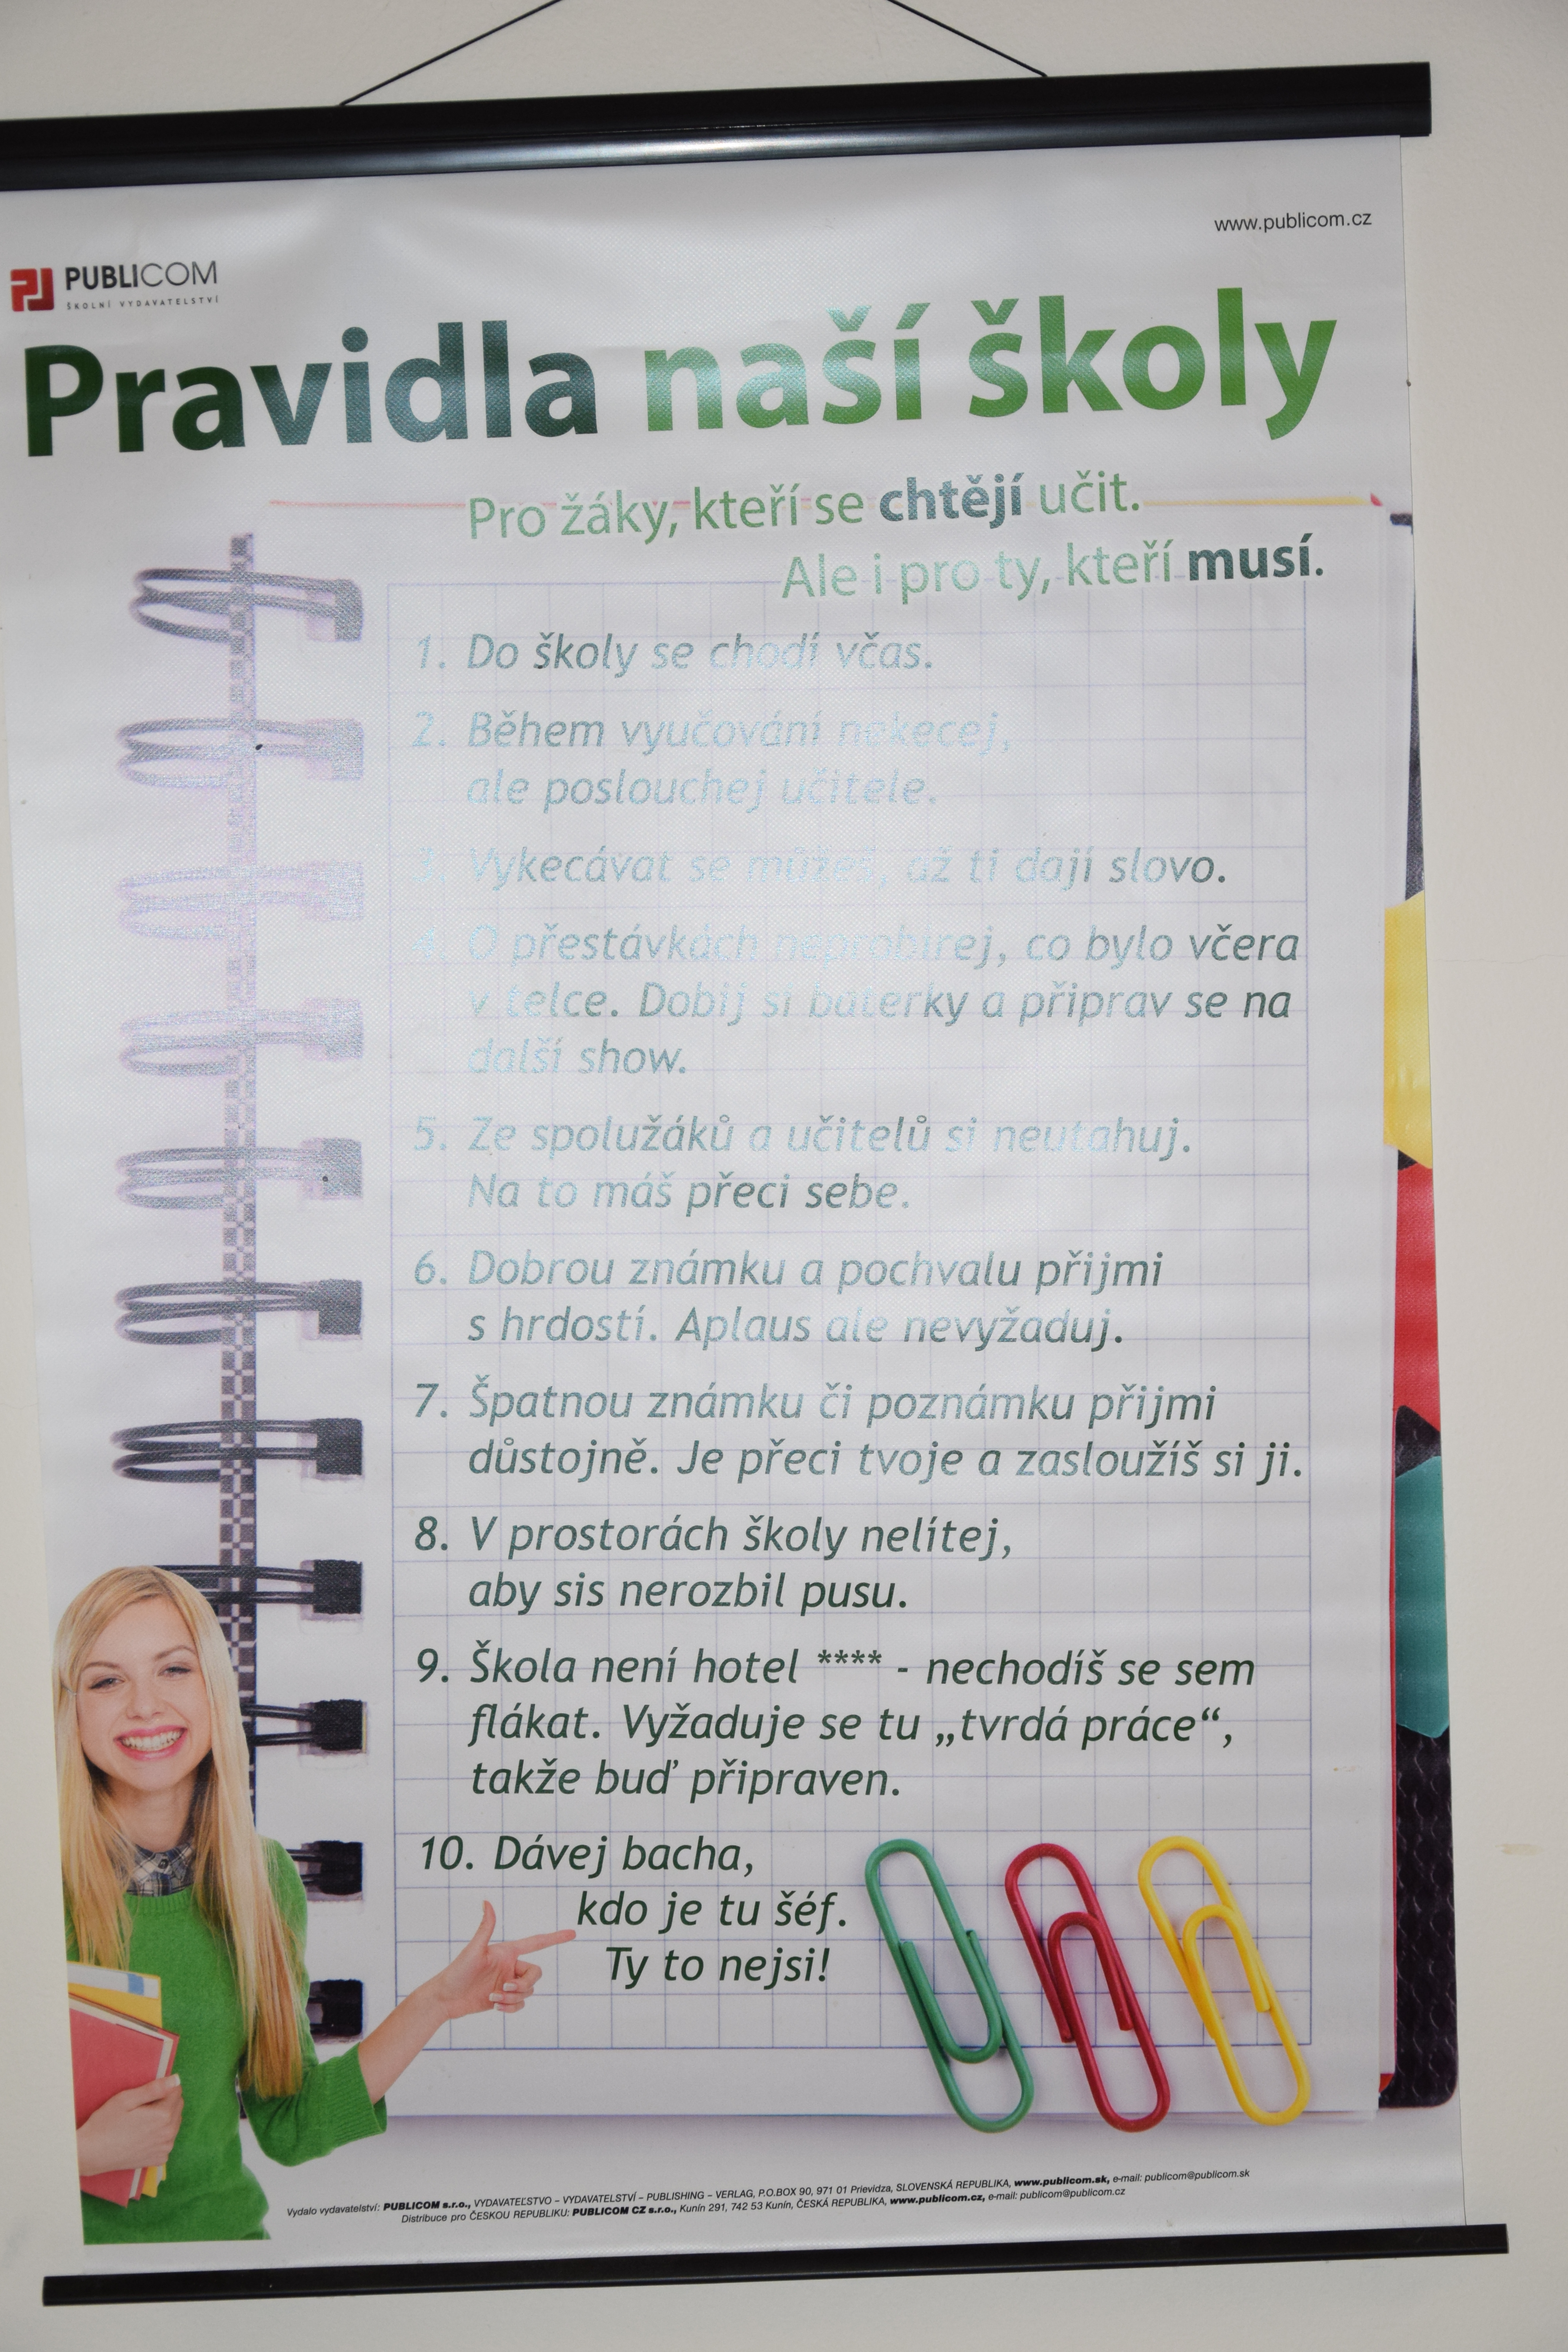 www.publicom.cz
PUBLICOM
ŠKOLNÍ VYDAVATELSTVÍ
Pravidla naší školy
Pro žáky, kteří se chtějí učit.
Ale i pro ty, kteří musí.
1. Do školy se chodí včas.
2. Během vyučování nekecej,
ale poslouchej učitele.
3. Vykecávat se můžeš, až ti dají slovo.
4. O přestávkách neprobírej, co bylo včera
v telce. Dobij si baterky a připrav se na
další show.
5. Ze spolužáků a učitelů si neutahuj.
Na to máš přeci sebe.
6. Dobrou známku a pochvalu přijmi
s hrdostí. Aplaus ale nevyžaduj.
7. Špatnou známku či poznámku přijmi
důstojně. Je přeci tvoje a zasloužíš si ji.
8. V prostorách školy nelítej,
aby sis nerozbil pusu.
9. Škola není hotel **** - nechodíš se sem
flákat. Vyžaduje se tu „tvrdá práce“,
takže buď připraven.
10. Dávej bacha,
kdo je tu šéf.
Ty to nejsi!
Vydalo vydavatelství: PUBLICOM s.r.o., VYDAVATEĽSTVO – VYDAVATELSTVÍ – PUBLISHING – VERLAG, P.O.BOX 90, 971 01 Prievidza, SLOVENSKÁ REPUBLIKA, www.publicom.sk, e-mail: publicom@publicom.sk
Distribuce pro ČESKOU REPUBLIKU: PUBLICOM CZ s.r.o., Kunín 291, 742 53 Kunín, ČESKÁ REPUBLIKA, www.publicom.cz, e-mail: publicom@publicom.cz